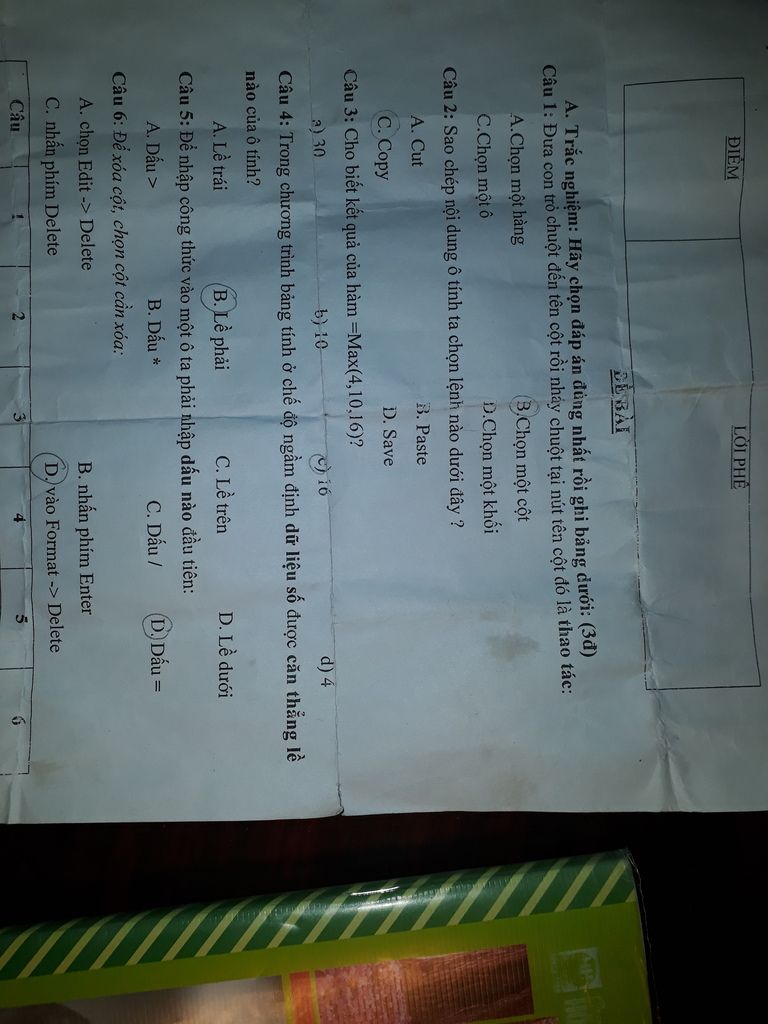 ĐIỂM
LỜI PHÊ
ĐỀ BÀI
A. Trắc nghiệm: Hãy chọn đáp án đúng nhất rồi ghi bảng dưới: (3đ)
Câu 1: Đưa con trỏ chuột đến tên cột rồi nháy chuột tại nút tên cột đó là thao tác:
A.Chọn một hàng B.Chọn một cột
C.Chọn một ô D.Chọn một khối
Câu 2: Sao chép nội dung ô tính ta chọn lệnh nào dưới đây ?
A. Cut B. Paste
C. Copy D. Save
Câu 3: Cho biết kết quả của hàm =Max(4,10,16)?
a) 30 b) 10 c) 16 d) 4
Câu 4: Trong chương trình bảng tính ở chế độ ngầm định dữ liệu số được căn thẳng lề
nào của ô tính?
A. Lề trái B. Lề phải C. Lề trên D. Lề dưới
Câu 5: Để nhập công thức vào một ô ta phải nhập dấu nào đầu tiên:
A. Dấu > B. Dấu * C. Dấu / D. Dấu =
Câu 6: Để xóa cột, chọn cột cần xóa:
A. chọn Edit -> Delete B. nhấn phím Enter
C. nhấn phím Delete D. vào Format -> Delete
Câu 1 2 3 4 5 6